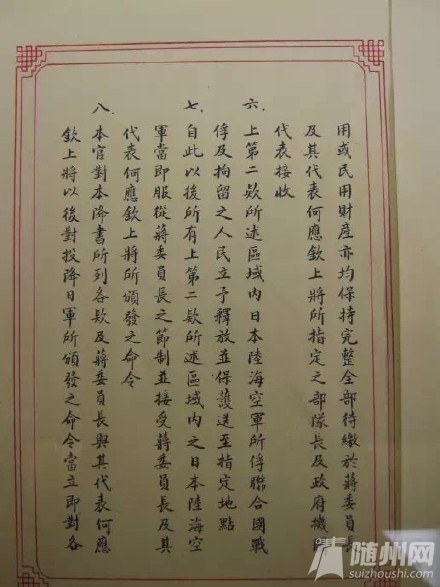 用或民用財產亦均保持完整全部待繳於蔣委員
及其代表何應欽上將所指定之部隊長及政府機
代表接收
六、上第二欵所述區域內日本陸海空軍所俘聯合國戰
俘及拘留之人民立予釋放並保護送至指定地點
七、自此以後所有上第二欵所述區域內之日本陸海空
軍當即服從蔣委員長之節制並接受蔣委員長及其
代表何應欽上將所頒發之命令
八、本官對本降書所列各欵及蔣委員長與其代表何應
欽上將以後對投降日軍所頒發之命令當立即對各
随州网
suizhoushi.com